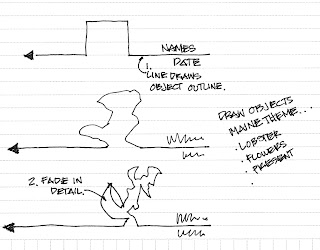 NAMES
DATE
1.
LINE DRAWS
OBJECT OUTLINE.
DRAW OBJECTS
MAINE THEME...
· LOBSTER
· FLOWERS
· PRESENT
·
2. FADE IN
DETAIL.